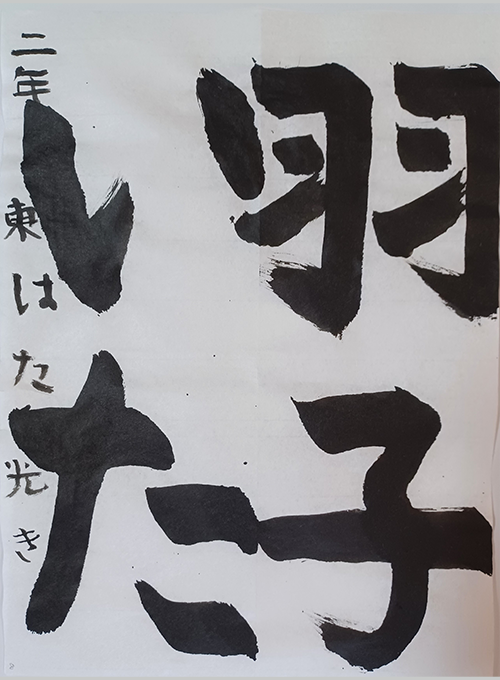 羽子
いた
二年 東はた光き